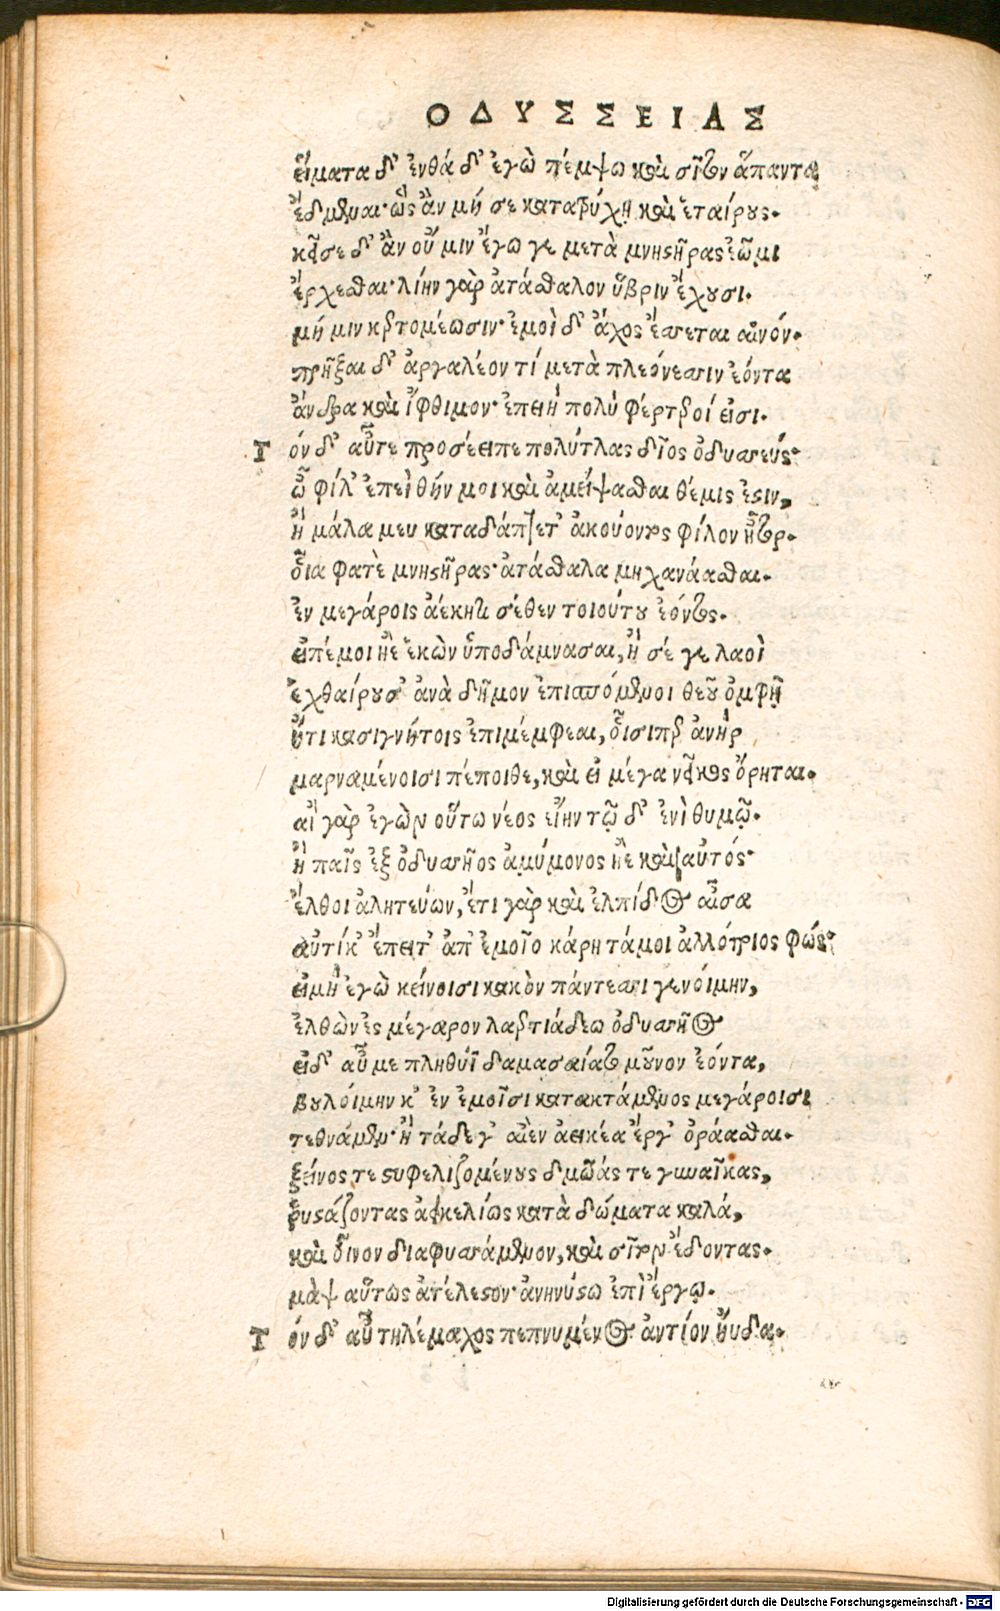 ΟΔΥΣΣΕΙΑΣ
εἵματα δ' ἐνθά δ' ἐγὼ πέμψω καὶ σῖτον ἅπαντα
ἔδμεναι· ὡς ἂν μή σε κατατρύχῃ καὶ ἑταίρους.
κεῖσε δ' ἂν οὔ μιν ἔγω γε μετὰ μνηστῆρας ἐῶμι
ἔρχεσθαι· λίην γὰρ ἀτάσθαλον ὕβριν ἔχουσι.
μή μιν κερτομέωσιν· ἐμοὶ δ' ἄχος ἔσσεται αἰνόν.
πρῆξαι δ' ἀργαλέον τί μετὰ πλεόνεσσιν ἐόντα
ἄνδρα καὶ ἴφθιμον· ἐπειὴ πολὺ φέρτεροί εἰσι.
Τόν δ' αὖτε προσέειπε πολύτλας δῖος ὀδυσσεύς·
ὦ φίλ' ἐπεὶ θήν μοι καὶ ἀμείψασθαι θέμις ἐστιν,
ἦ μάλα μευ καταδάπτετ' ἀκούοντος φίλον ἦτορ.
οἷα φατὲ μνηστῆρας· ἀτάσθαλα μηχανάασθαι.
ἐν μεγάροις ἀέκητι σέθεν τοιούτου ἐόντος.
εἰπέ μοι ἠὲ ἑκὼν ὑποδάμνασαι, ἦ σέ γε λαοὶ
ἐχθαίρουσ' ἀνὰ δῆμον ἐπισπόμενοι θεοῦ ὀμφῇ
ἤ τι κασιγνήτοις ἐπιμέμφεαι, οἷσι περ ἀνὴρ
μαρναμένοισι πέποιθε, καὶ εἰ μέγα νεῖκος ὄρηται.
αἲ γὰρ ἐγὼν οὕτω νέος εἴην τῷ δ' ἐνὶ θυμῷ.
ἢ παῖς ἐξ ὀδυσσῆος ἀμύμονος ἠὲ καὶ αὐτός·
ἔλθοι ἀλητεύων, ἔτι γὰρ καὶ ἐλπίδος αἶσα
αὐτίκ' ἔπειτ' ἀπ' ἐμοῖο κάρη τάμοι ἀλλότριος φώς·
εἰ μὴ ἐγὼ κείνοισι κακὸν πάντεσσι γενοίμην,
ἐλθὼν ἐς μέγαρον λαερτιάδεω ὀδυσσῆος
εἰ δ' αὖ με πληθύϊ δαμασαίατο μοῦνον ἐόντα,
βουλοίμην κ' ἐν ἐμοῖσι κατακτάμενος μεγάροισι
τεθνάμεν· ἢ τάδε γ' αἰὲν ἀεικέα ἔργ' ὁράασθαι.
ξείνος τε στυφελιζομένους δμωάς τε γυναῖκας,
ῥυστάζοντας ἀεικελίως κατὰ δώματα καλά,
καὶ οἶνον διαφυσσάμενον, καὶ σῖτον ἔδοντας.
μὰψ αὔτως ἀτέλεστον· ἀνηνύστω ἐπὶ ἔργῳ.
Τόν δ' αὖ τηλέμαχος πεπνυμένος ἀντίον ηὔδα.
Digitalisierung gefördert durch die Deutsche Forschungsgemeinschaft - DFG